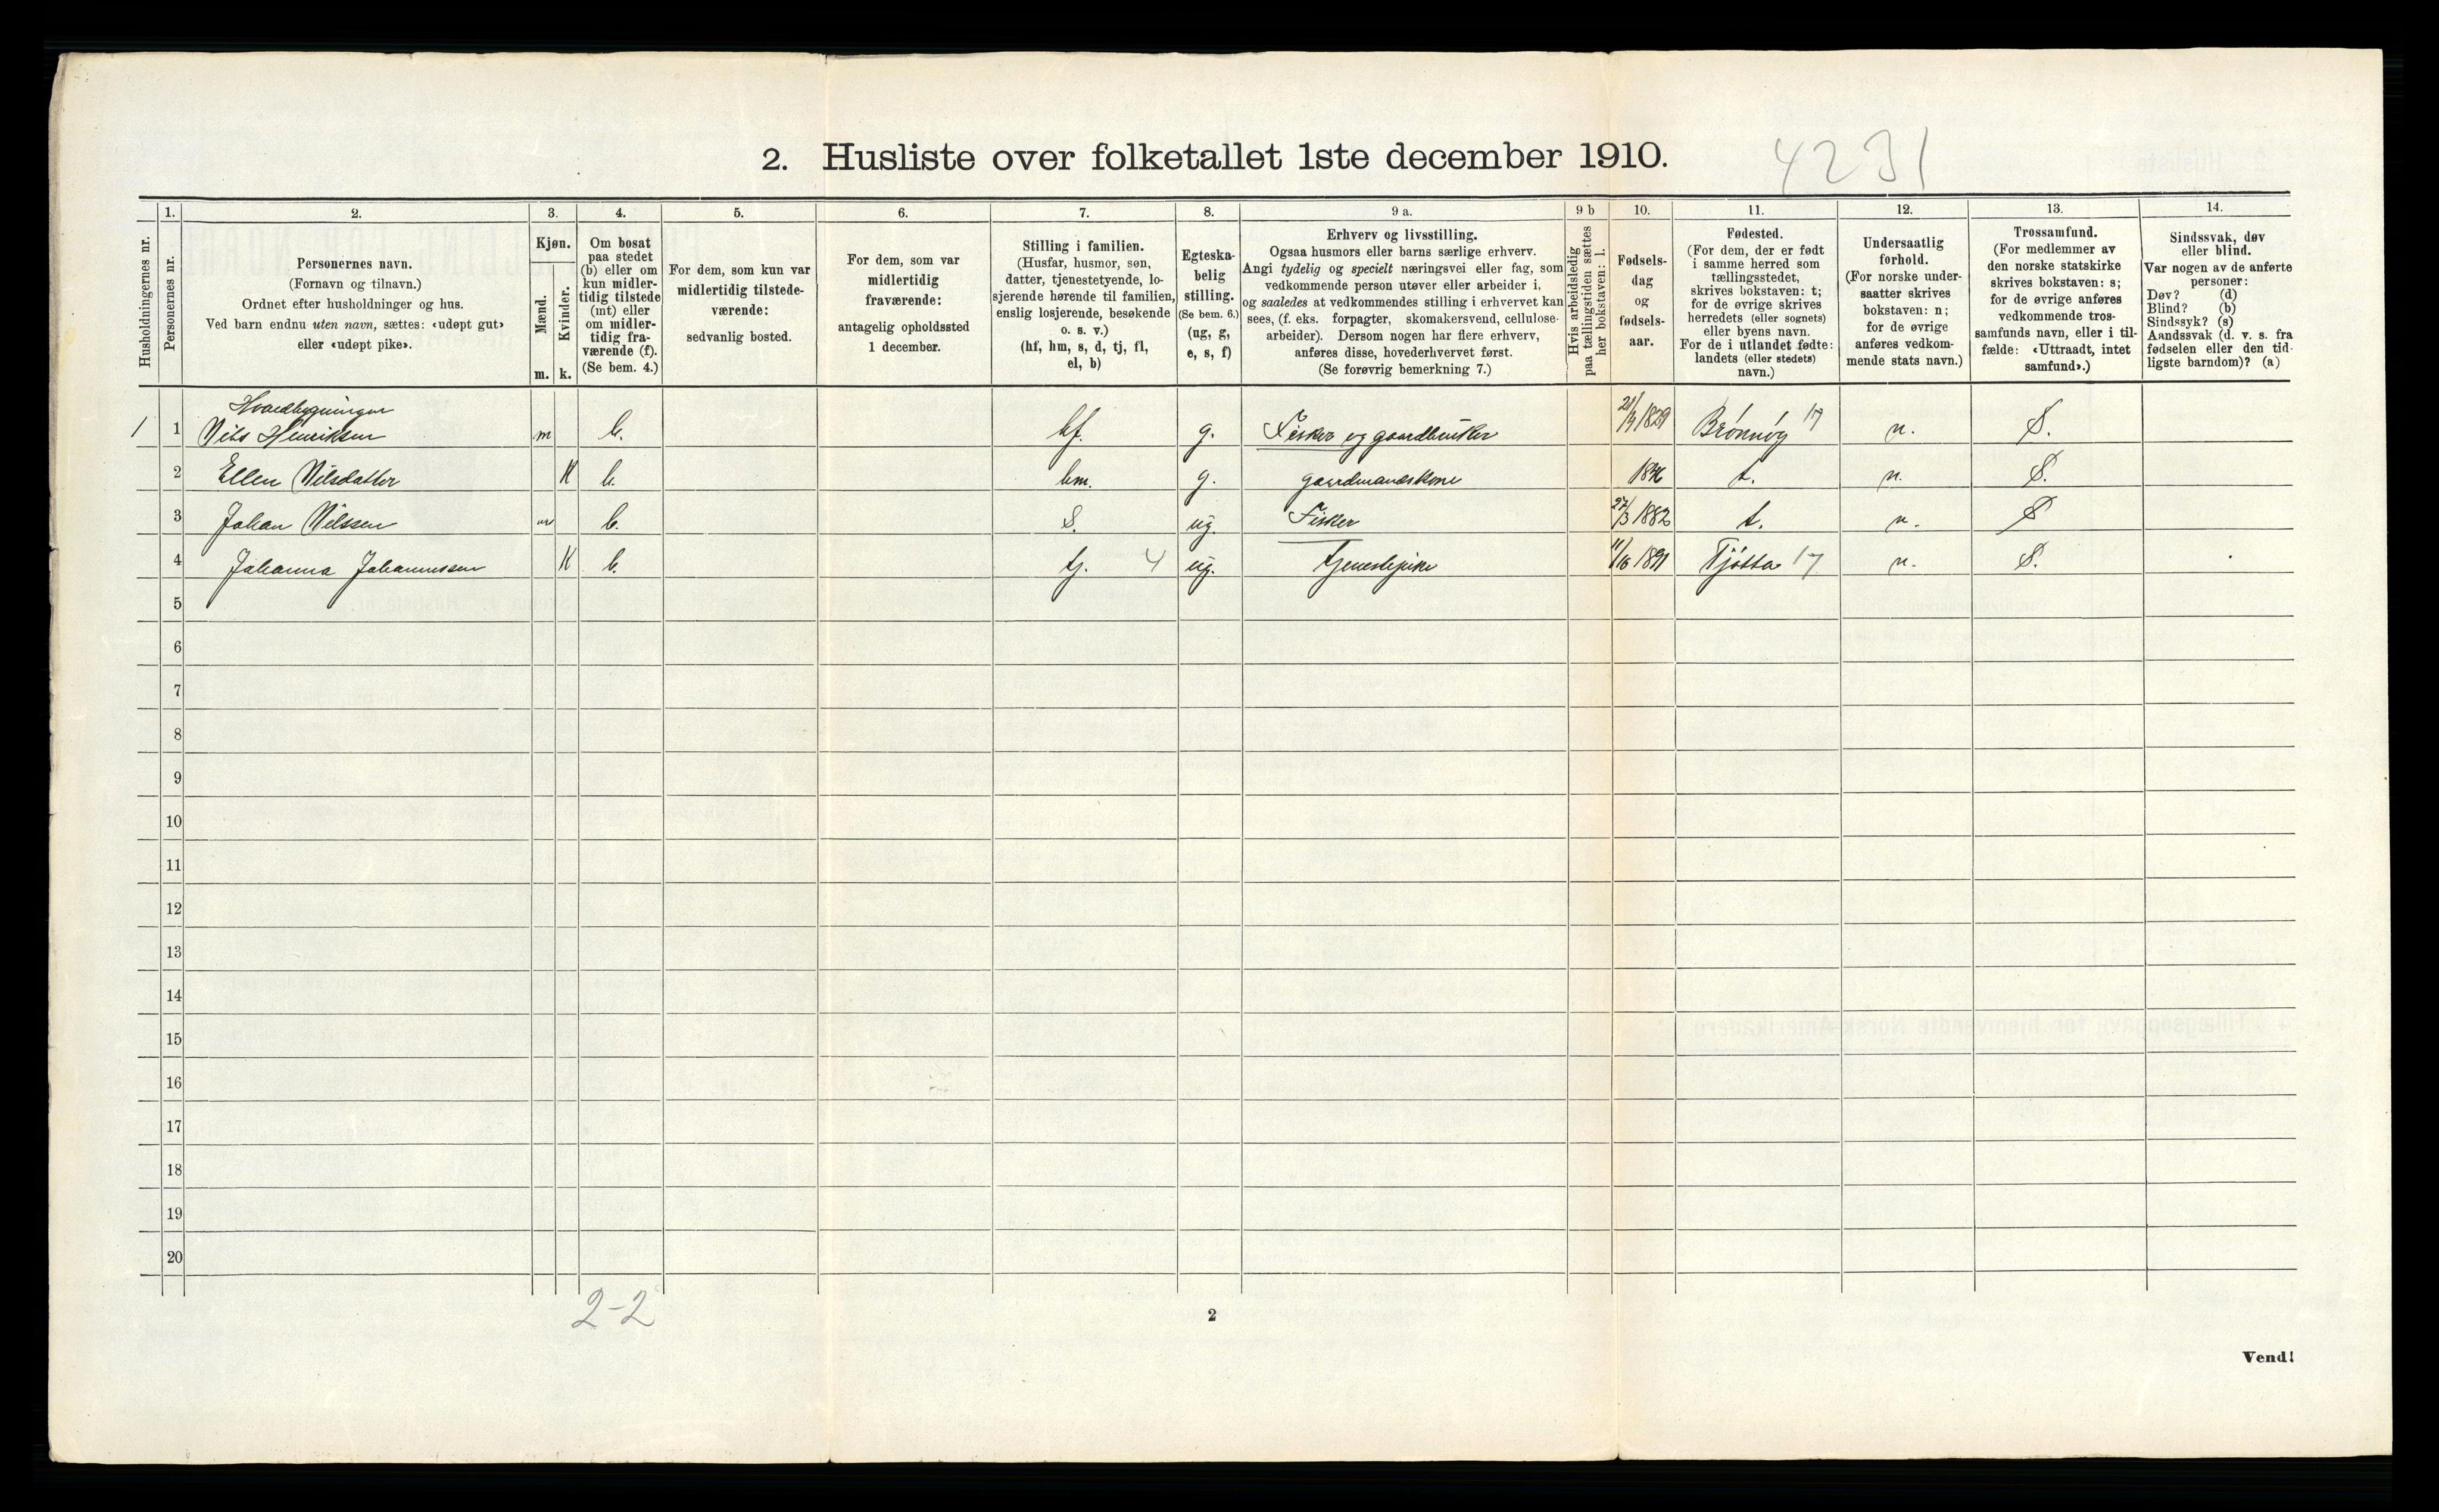 2. Husliste over folketallet 1ste december 1910.
4231
Husholdningernes nr.
1.
Personernes nr.
2.
Personernes navn.
(Fornavn og tilnavn.)
Ordnet efter husholdninger og hus.
Ved barn endnu uten navn, sættes: «udøpt gut»
eller «udøpt pike».
3.
Kjøn.
Mænd.
Kvinder.
m. k.
4.
Om bosat
paa stedet
(b) eller om
kun midler-
tidig tilstede
(mt) eller
om midler-
tidig fra-
værende (f).
(Se bem. 4.)
5.
For dem, som kun var
midlertidig tilstede-
værende:
sedvanlig bosted.
6.
For dem, som var
midlertidig
fraværende:
antagelig opholdssted
1 december.
7.
Stilling i familien.
(Husfar, husmor, søn,
datter, tjenestetyende, lo-
sjerende hørende til familien,
enslig losjerende, besøkende
o. s. v.)
(hf, hm, s, d, tj, fl,
el, b)
8.
Egteska-
belig
stilling.
(Se bem. 6.)
(ug, g,
e, s, f)
9 a.
Erhverv og livsstilling.
Ogsaa husmors eller barns særlige erhverv.
Angi tydelig og specielt næringsvei eller fag, som
vedkommende person utøver eller arbeider i,
og saaledes at vedkommendes stilling i erhvervet kan
sees, (f. eks. forpagter, skomakersvend, cellulose-
arbeider). Dersom nogen har flere erhverv,
anføres disse, hovederhvervet først.
(Se forøvrig bemerkning 7.)
9 b
Hvis arbeidsledig
paa tællingstiden sættes
her bokstaven: l.
10.
Fødsels-
dag
og
fødsels-
aar.
11.
Fødested.
(For dem, der er født
i samme herred som
tællingsstedet,
skrives bokstaven: t;
for de øvrige skrives
herredets (eller sognets)
eller byens navn.
For de i utlandet fødte:
landets (eller stedets)
navn.)
12.
Undersaatlig
forhold.
(For norske under-
saatter skrives
bokstaven: n;
for de øvrige
anføres vedkom-
mende stats navn.)
13.
Trossamfund.
(For medlemmer av
den norske statskirke
skrives bokstaven: s;
for de øvrige anføres
vedkommende tros-
samfunds navn, eller i til-
fælde: «Uttraadt, intet
samfund».)
14.
Sindssvak, døv
eller blind.
Var nogen av de anførte
personer:
Døv? (d)
Blind? (b)
Sindssyk? (s)
Aandssvak (d. v. s. fra
fødselen eller den tid-
ligste barndom)? (a)
Hovedbygningen
1 1 Nils Henriksen m b. hf. g. Fisker og gaardbruker 1829 Brønnøy 17 n. S.
2 Ellen Nilsdatter K b. hm. g. gaardmandskone t. n. S.
3 Johan Nilssen m b. S. ug. Fisker 27/3 1882 t. n. S
4 Johanna Johannessen K b. tj. 4 ug. Tjenestepike 11/10 1891 Tjøtta 17 n. S.
5
6
7
8
9
10
11
12
13
14
15
16
17
18
19
20
2-2
2
Vend!